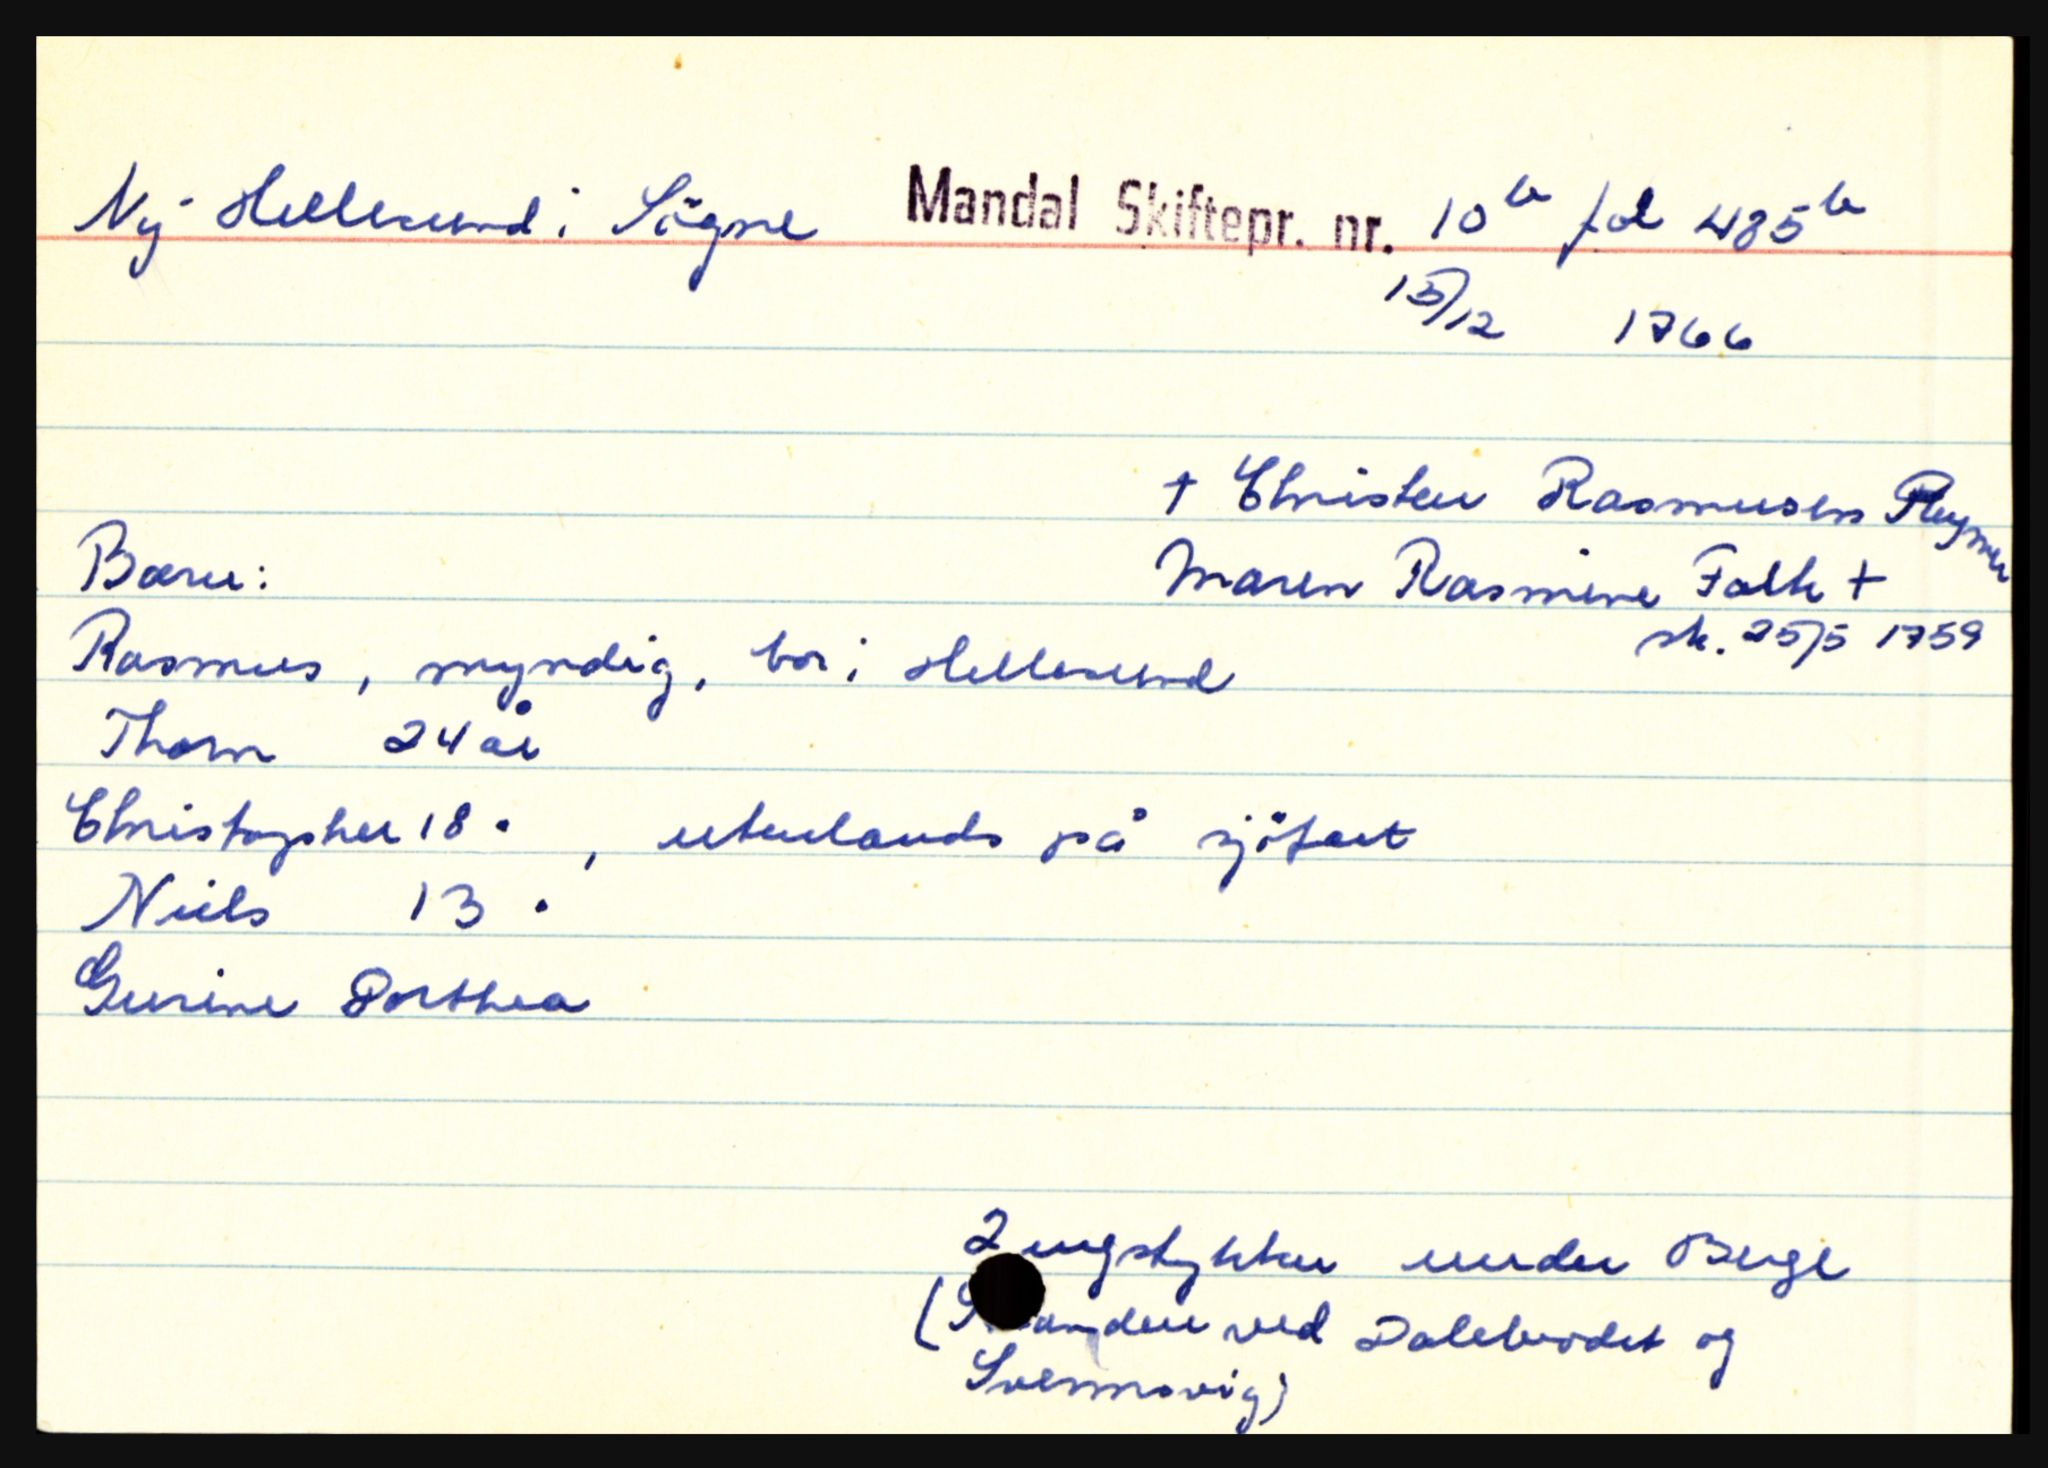 Ny-Hellesund i Sögne Mandal Skiftepr. nr. 10b fol 485b
15/12 1766
† Christen Rasmusen
Maren Rasmine Falk †
sk. 25/5 1759
Barn:
Rasmus, myndig, bor i Hellesund
Thom 24 år
Christopher 18 ", utenlands på sjöfart
Niels 13 "
Gurine Dorthea
2 engstykker under Berge
( ved og
)